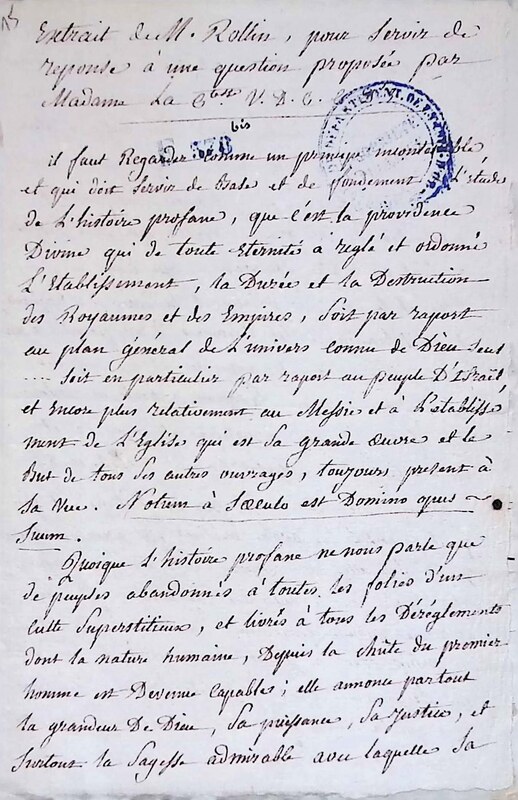 Extrait de M. Rollin, pour servir de
reponse à une question proposée par
Madame La C.tsse V. D. C.
bis
il faut Regarder comme un principe incontestable
et qui doit servir de Base et de fondement à L'étude
de L'histoire profane, que c'est la providence
Divine qui de toute Eternité a reglé et ordonné
L'Etablissement, la Durée et la Destruction
des Royaumes et des Empires, soit par raport
au plan général de L'univers connu de Dieu seul
.... soit en particulier par raport au peuple D'Israël,
et Encore plus relativement au Messie et à l'etablisse
ment de L'Eglise qui est sa grande œuvre et le
But de tous ses autres ouvrages, toujours present à
sa vue. Notum à Sæculo est Domino opus
suum.
Quoique L'histoire profane ne nous parle que
de peuples abandonnés à toutes les folies d'un
culte superstitieux, et livrés à tous les Déréglements
dont la nature humaine, Depuis la chûte du premier
homme est Devenue capables; elle annonce partout
la grandeur De Dieu, sa puissance, sa Justice, et
surtout la sagesse admirable avec laquelle sa